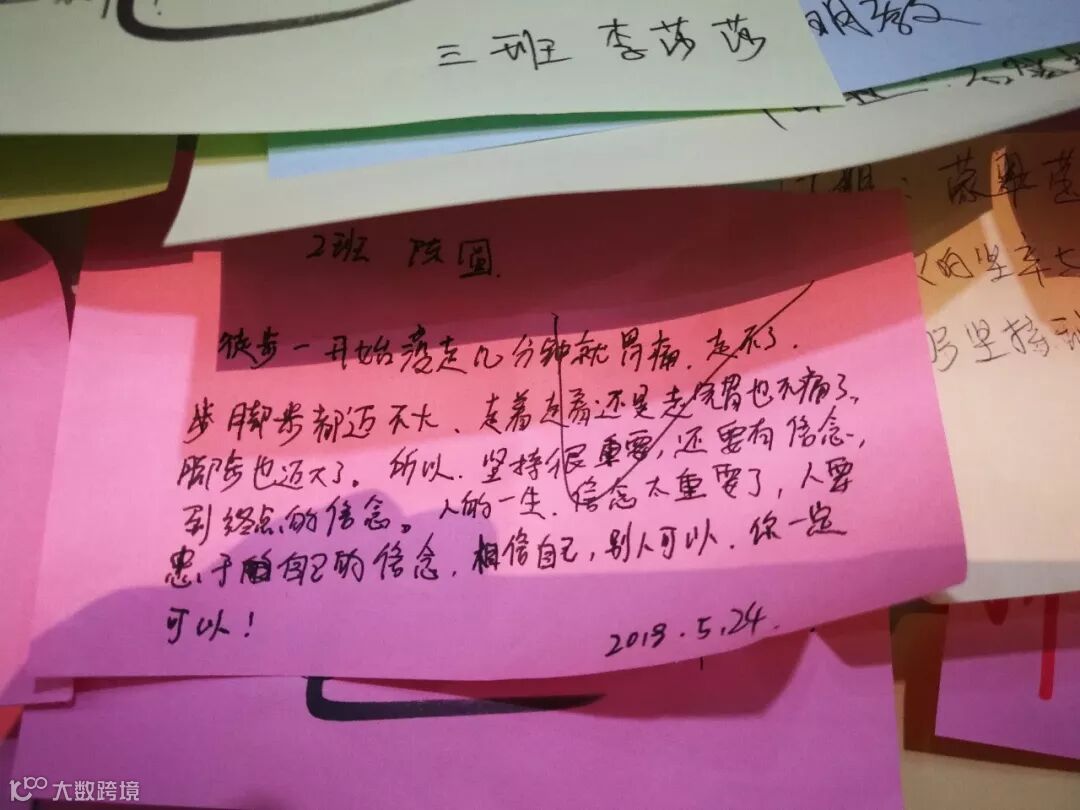 三班 李莎莎
明敏
2班 陈圆.
徒步一开始没走几分钟就胃痛.走不了.
步脚步都迈不大、走着走着还是走完胃也不痛了。
脚步也迈大了。所以.坚持很重要,还要有信念,
到终点的信念。人的一生.信念太重要了,人要
忠于自己的信念.相信自己,别人可以.你一定
可以!
2019.5.24.
的坚
坚持
大数跨境